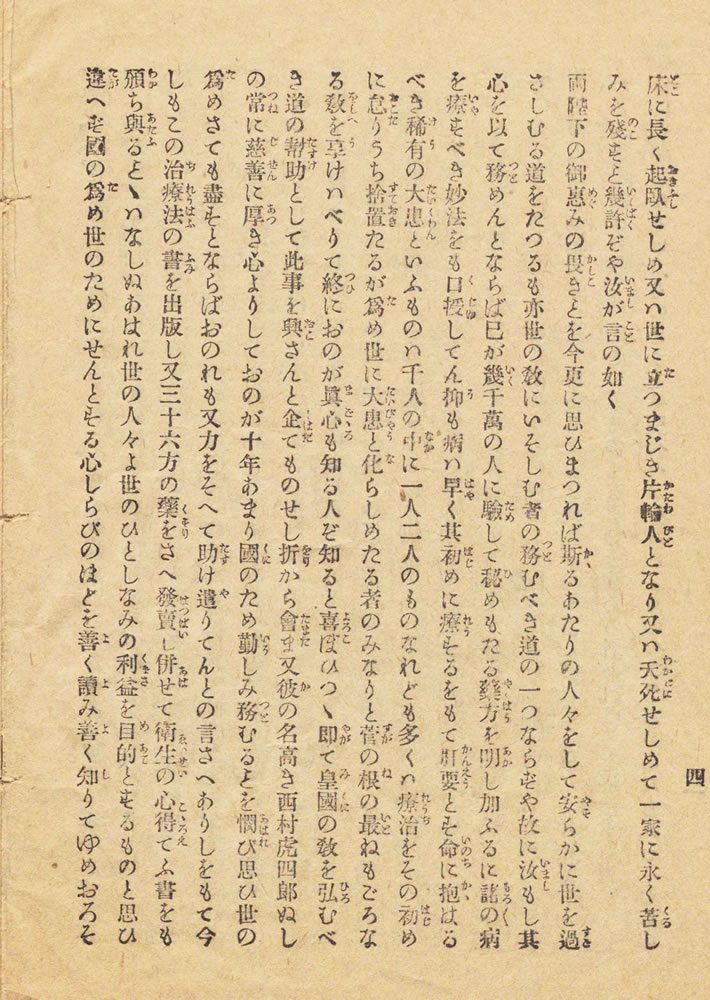 床に長く起臥せしめ又ハ世に立つまじき片輪人となり又ハ夭死せしめて一家に永く苦し
みを殘すと幾許ぞや汝が言の如く
両陛下の御惠みの畏きとを今更に思ひまつれば斯るわたりの人々をして安らかに世を過
さしむる道をたつるも亦世の敎にいそしむ者の務むべき道の一つならずや故に汝もし其
心を以て務めんとならば已が幾千萬の人に驗して秘めもたる藥方を明し加ふるに諸の病
を療すべき妙法をも口授してん抑も病ハ早く其初めに療するをもて肝要とす命に抱はる
べき稀有の大患といふものハ千人の中に一人二人のものなれども多くハ療治をその初め
に怠りうち捨置たるが爲め世に大患と化らしめたる者のみなりと菅の根の最ねもごろな
る敎を享けハべりて終におのが眞心も知る人ぞ知ると喜ぼひつゝ即て皇國の敎を弘むべ
き道の幇助として此事を興さんと企てものせし折から會ま又彼の名高き西村虎四郎ぬし
の常に慈善に厚き心よりしておのが十年あまり國のため勤しみ務むるとを憫び思ひ世の
爲めさても盡すとならばおのれも又力をそへて助け遣りてんとの言さへありしをもて今
しもこの治療法の書を出版し又三十六方の藥をさへ發賣し併せて衛生の心得てふ書をも
頒ち與るとゝハなしぬあはれ世の人々よ世のひとしなみの利益を目的とするものと思ひ
違へず國の爲め世のためにせんとする心しらびのほどを善く讀み善く知りてゆめおろそ
四